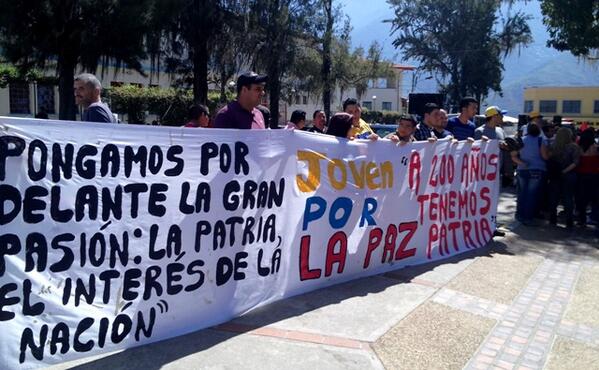 PONGAMOS POR
DELANTE LA GRAN
PASIÓN: LA PATRIA,
EL INTERÉS DE LA
NACIÓN"
JOVEN
POR
LA PAZ
"A 200 AÑOS
TENEMOS
PATRIA"